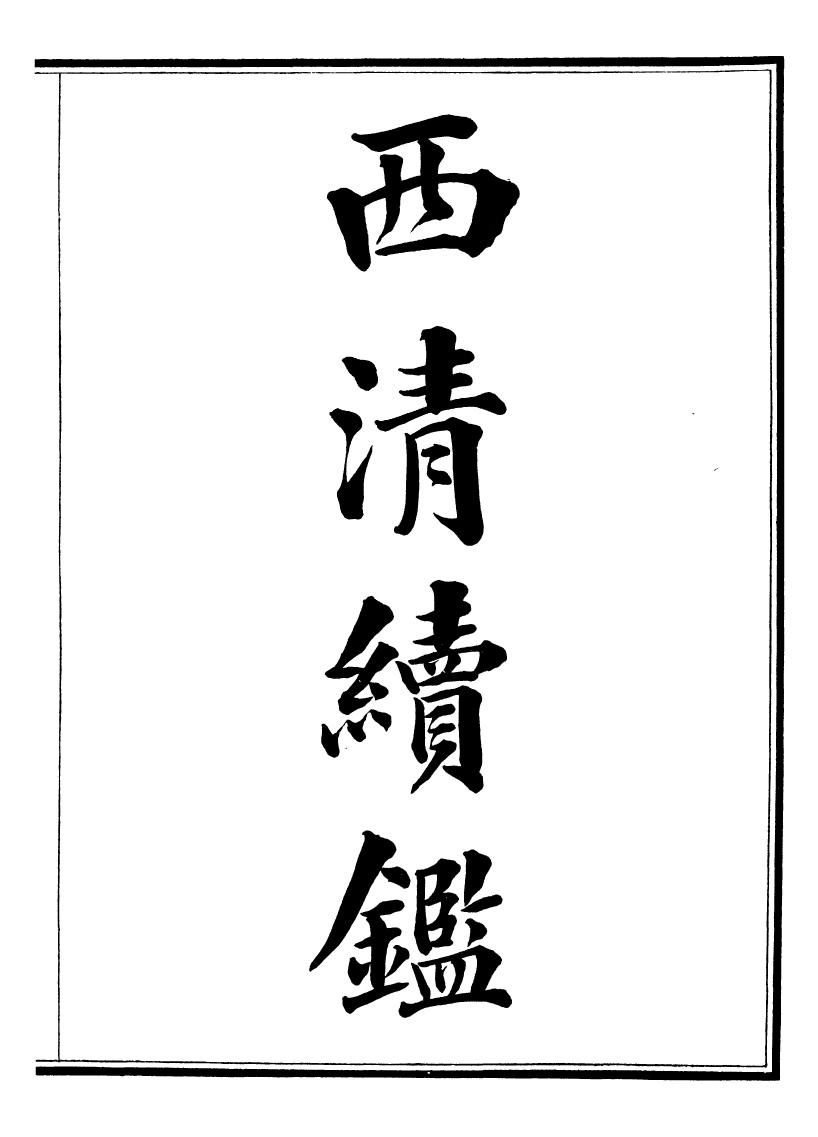 西清續鑑